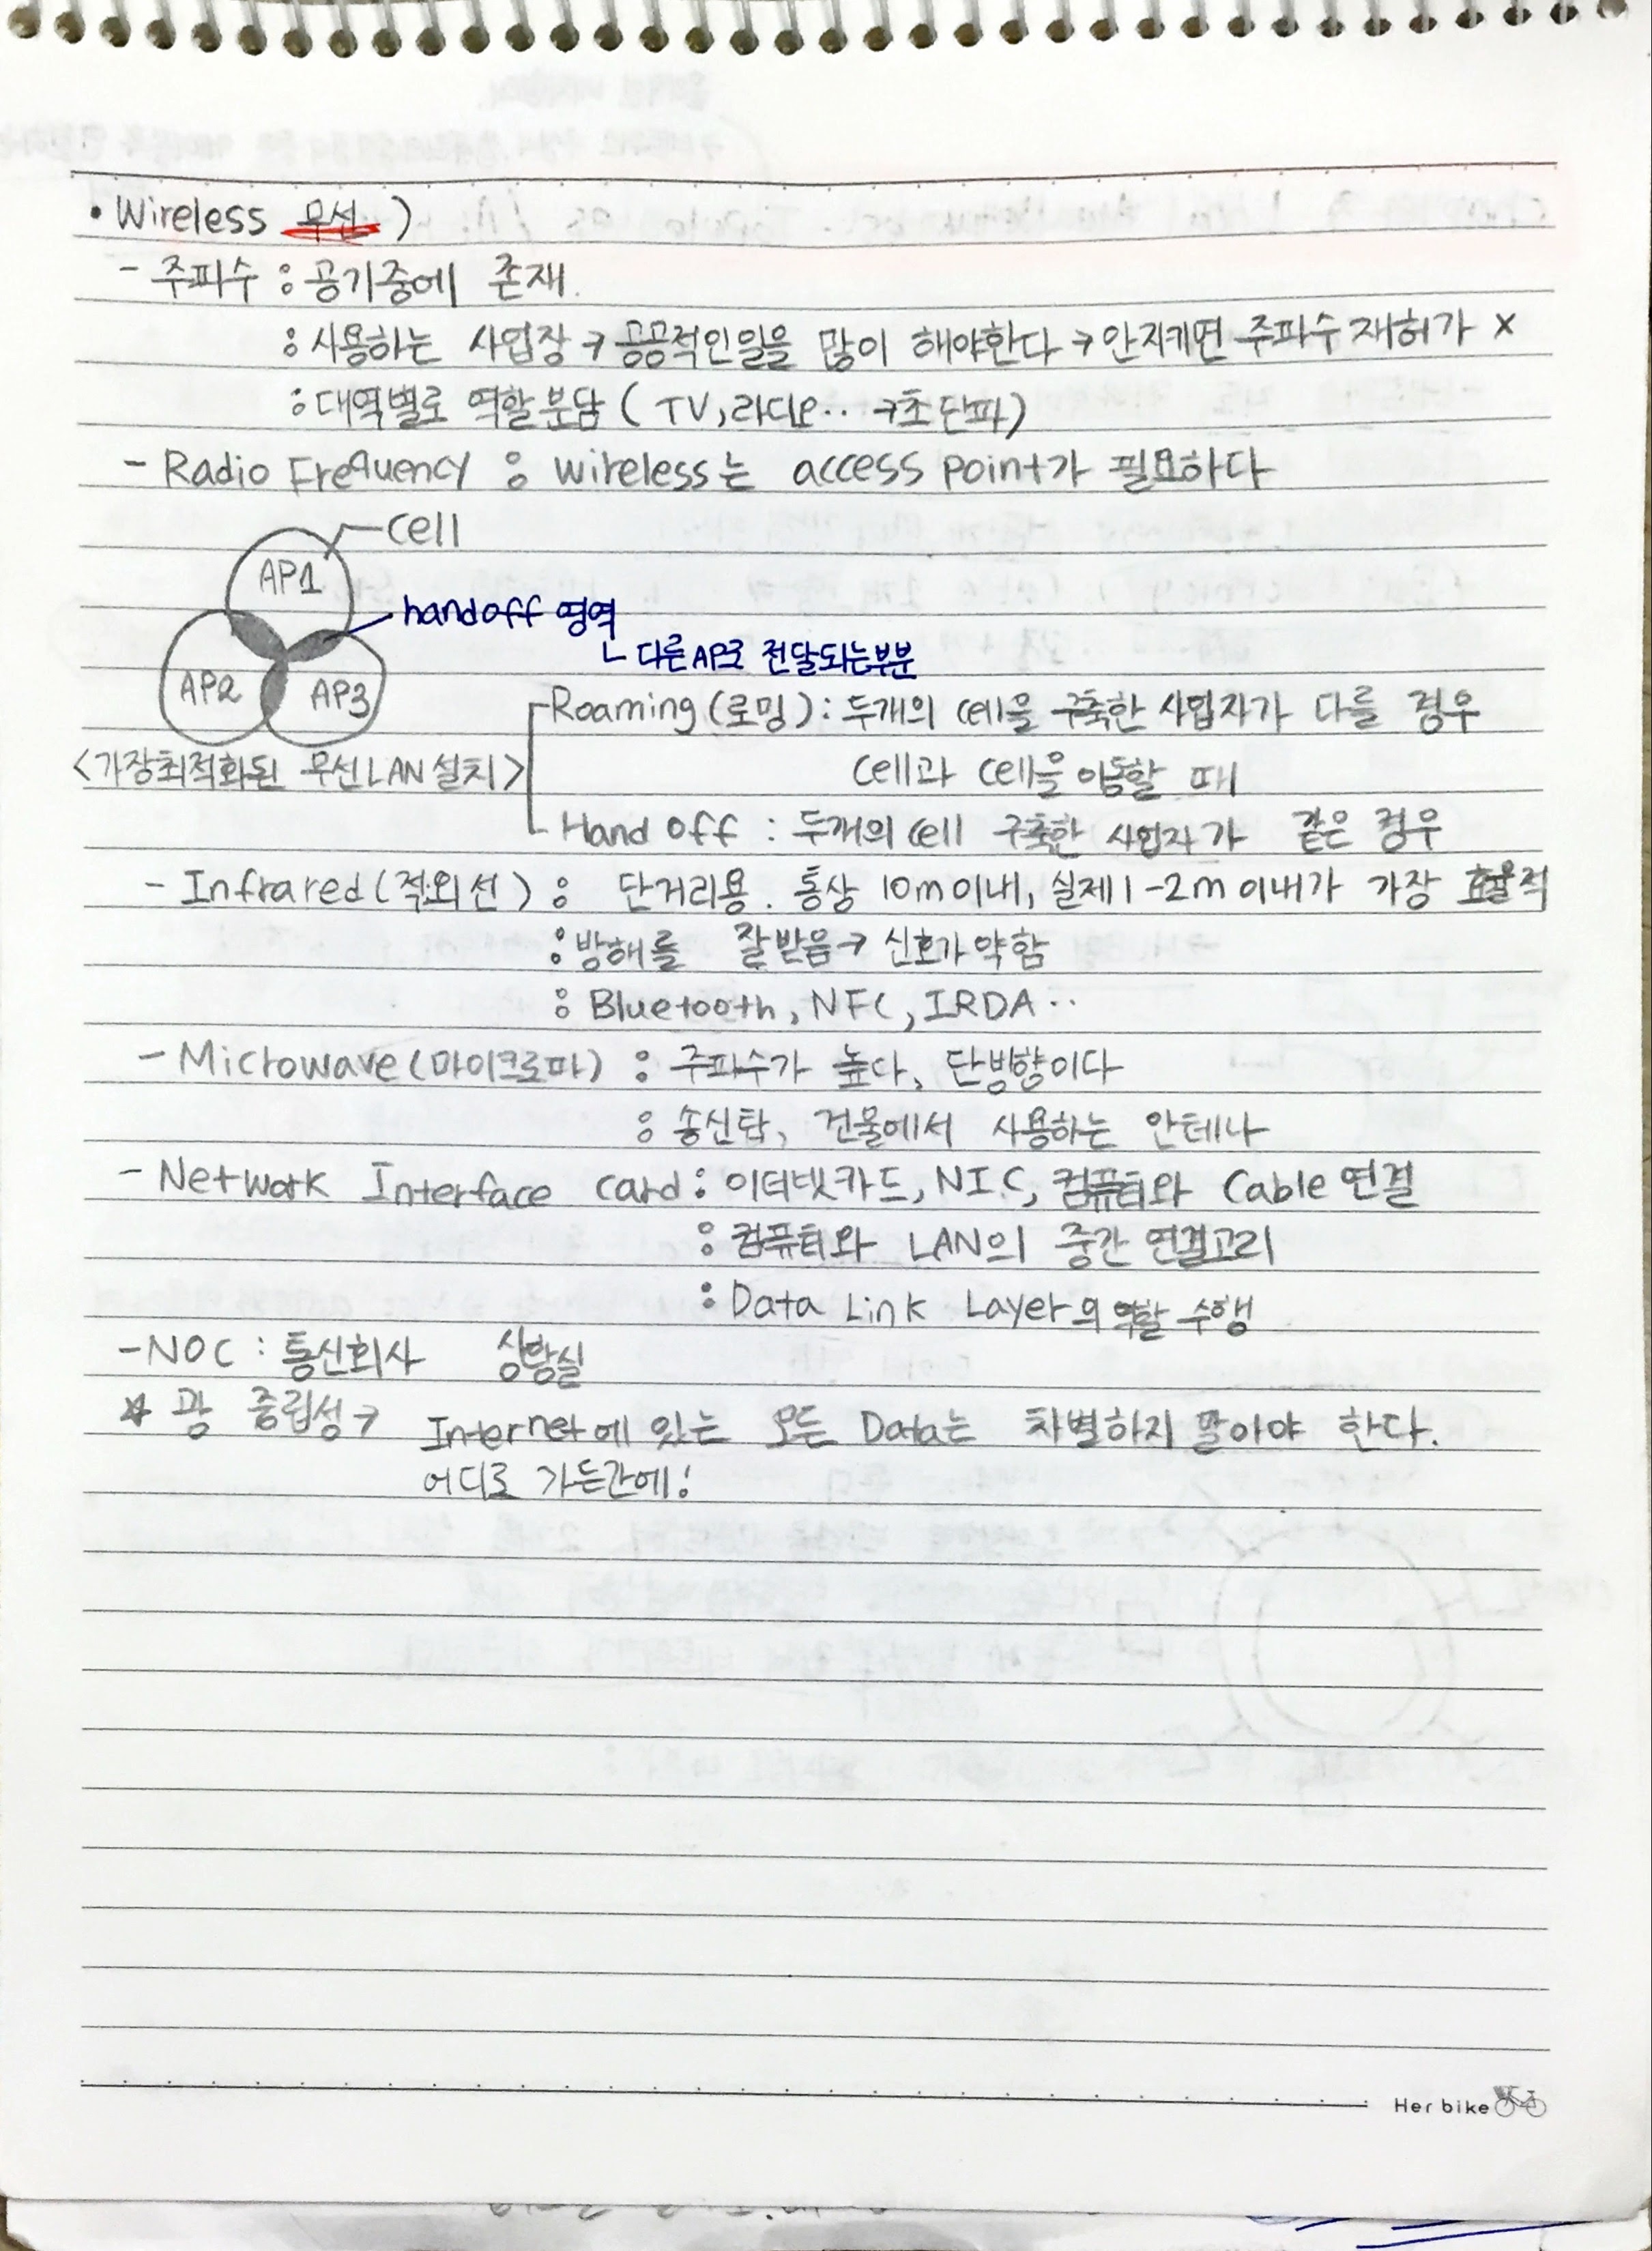 • Wireless 무선 )
- 주파수 : 공기중에 존재.
: 사용하는 사업장 → 공공적인일을 많이 해야한다 → 안지키면 주파수 재허가 X
: 대역별로 역할분담 ( TV, 라디오.. → 초단파)
- Radio Frequency : wireless는 access point가 필요하다
cell
AP1
handoff 영역
└ 다른AP로 전달되는부분
AP2 AP3
Roaming (로밍) : 두개의 cell을 구축한 사업자가 다를 경우
<가장최적화된 무선LAN설치> cell과 cell을 이동할 때
Hand off : 두개의 cell 구축한 사업자가 같은 경우
- Infrared (적외선) : 단거리용. 통상 10m이내, 실제 1-2m 이내가 가장 효율적
: 방해를 잘받음 → 신호가약함
: Bluetooth, NFC, IRDA ..
- Microwave (마이크로파) : 주파수가 높다, 단방향이다
: 송신탑, 건물에서 사용하는 안테나
- Network Interface card : 이더넷카드, N.I.C, 컴퓨터와 Cable 연결
: 컴퓨터와 LAN의 중간 연결고리
: Data Link Layer의 역할 수행
- NOC : 통신회사 상황실
☆ 광 중립성 → Internet에 있는 모든 Data는 차별하지 말아야 한다.
어디로 가든간에!
Her bike